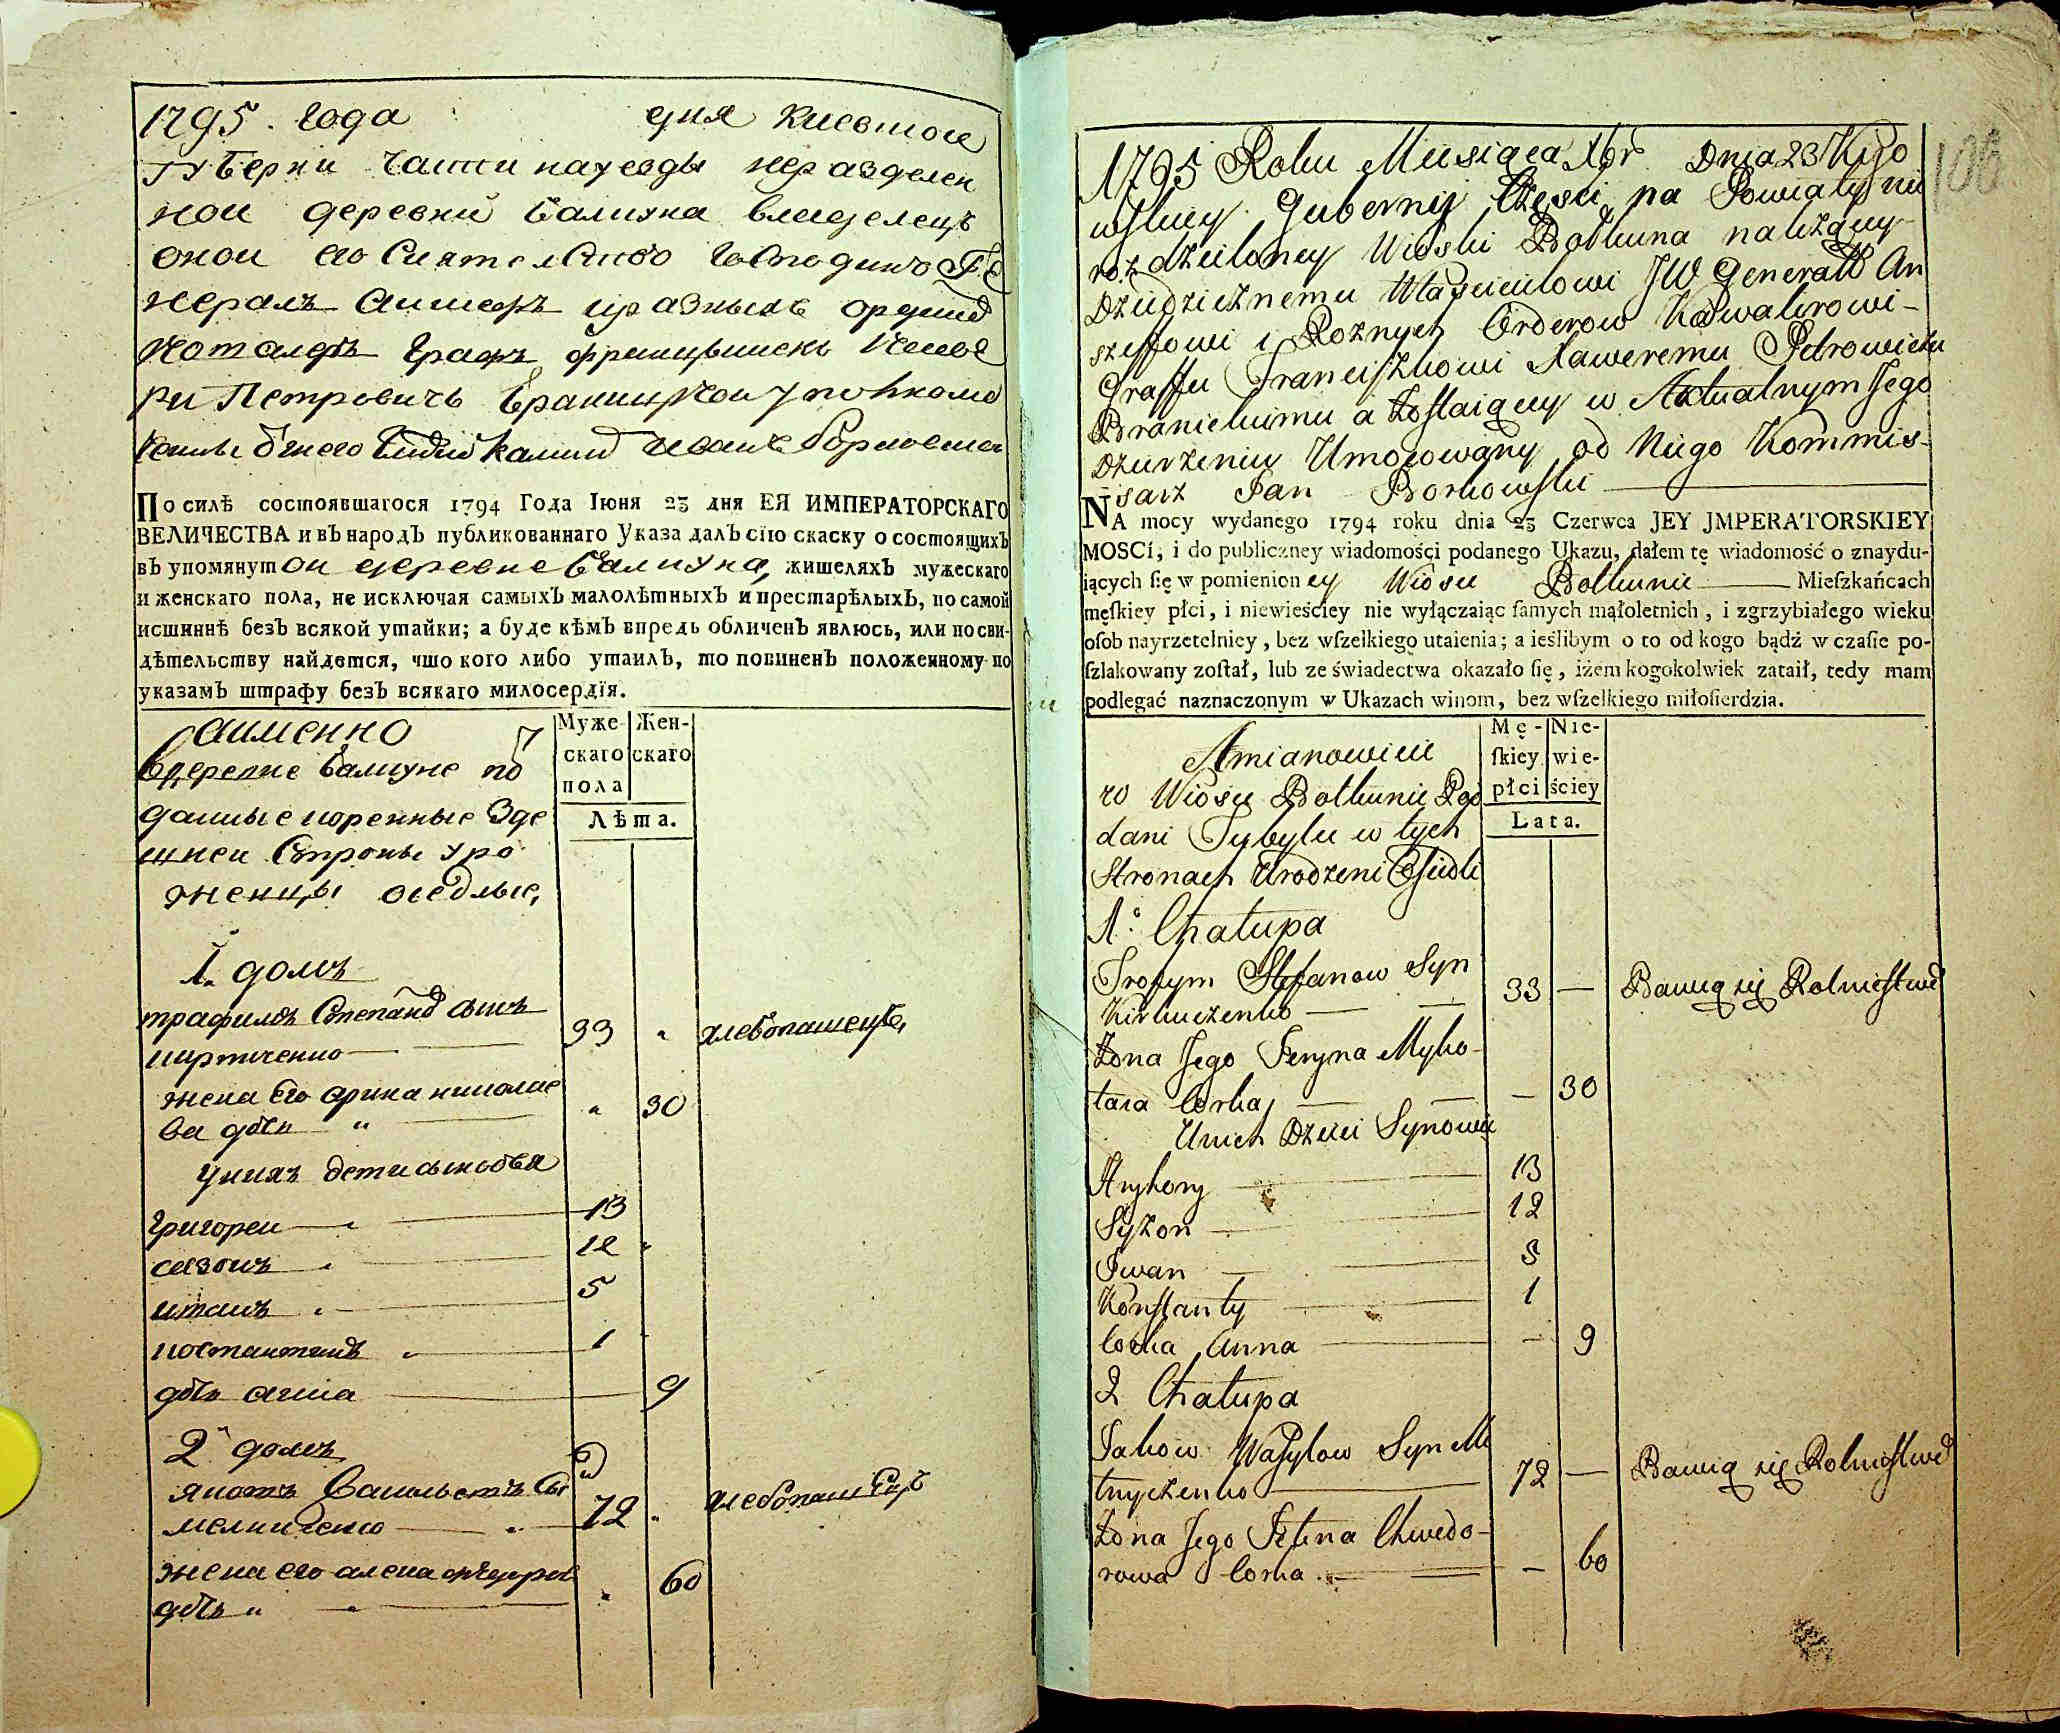 1795. года дня Киевской
губерни части науезды неразделен
ной деревни Балкуна владелецъ
оной его Сиятелство Господинъ Ге
нералъ Аншефъ и разныхъ ордено
Графъ Францишекъ
Петровичъ Браницкой
Иванъ Борковски
По силѣ состоявшагося 1794 Года Іюня 23 дня ЕЯ ИМПЕРАТОРСКАГО
ВЕЛИЧЕСТВА и въ народъ публикованнаго Указа далъ сію скаску о состоящихъ
въ упомянутои деревне Балкуна, жишеляхъ мужескаго
и женскаго пола, не исключая самыхъ малолѣтныхъ и престарѣлыхъ, по самой
исшиннѣ безъ всякой утайки; а буде кѣмъ впредь обличенъ явлюсь, или по сви-
дѣтельству найдется, чшо кого либо утаилъ, то повиненъ положенному по
указамъ штрафу безъ всякаго милосердїя.
Аименно
Вдеревне Балкуне по
данные коренные Зде
шней Стороны уро
женцы оседлые,
Муже- Жен-
скаго скаго
пола
Лѣта.
1. домъ
трафимъ Степановъ сынъ
кирпиченко 33 " хлебопашецъ,
жена его орина николае
ва дочь " " 30
уних дети сыновья
Григореи 13
сазонъ 12 "
иванъ 5
костантинъ 1
дочь анна 9
2 домъ
яковъ Васильевъ Сы
мелниченко 72 " хлебопашецъ
жена его алена федоров
дочь " " 60
106
1795 Roku Miesiąca Xbr Dnia 23 Kijo
wskiey Guberny Częsci na Powiaty nie
rozdzieloney Wioski Bolkuna nalezącey
Dziedzicznemu Właścicielowi JW Generałł An
szeffowi i Roznych Orderow Kawalerowi-
Graffu Franciszkowi Xaweremu Petrowiczu
Branickiemu a Zostaiący w Aktualnym Jego
Dzierzeniu Umocowany od Niego Kommis-
sarz Jan Borkowski
NA mocy wydanego 1794 roku dnia 23 Czerwca JEY JMPERATORSKIEY
MOSCI, i do publiczney wiadomości podanego Ukazu, dałem tę wiadomość o znaydu-
iących ſię w pomienioney Wiosce Bolkunie Mieſzkańcach
męſkiey płci, i niewieściey nie wyłączaiąc ſamych małoletnich, i zgrzybiałego wieku
oſob nayrzetelniey, bez wſzelkiego utaienia; a ieślibym o to od kogo bądź w czaſie po-
ſzlakowany zoſtał, lub ze świadectwa okazało ſię, iżem kogokolwiek zataił, tedy mam
podlegać naznaczonym w Ukazach winom, bez wſzelkiego miłoſierdzia.
Amianowicie
w Wiosce Bolkunie Pod
dani Tybylu w tych
Stronach Urodzeni Osiedli
Mę- Nie-
ſkiey wie-
płci ściey
Lata.
1. Chałupa
Trofym Stefanow Syn
Kirpiczenko 33 — Bawią się Rolnictwē
Zona Jego Jeryna Myko-
łaia Corka — 30
Unich Dzieci Synowie
Hryhory 13
Syzon 12
Iwan 5
Konstanty 1
Corka Anna — 9
2 Chałupa
Jakow Wasylow Syn Me
lnyczenko 72 — Bawią się Rolnictwē
Zona Jego Jełena Chwedo-
rowa Corka — 60